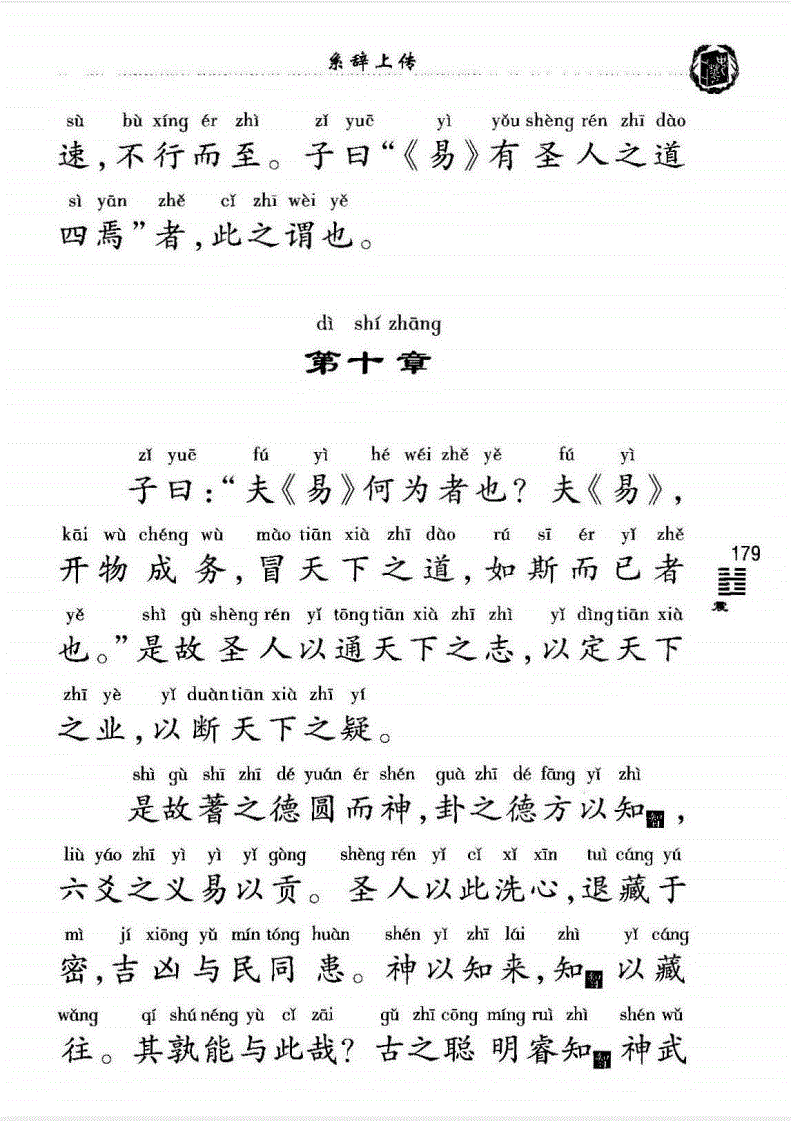 系辞上传
sù bù xíng ér zhì zǐ yuē yì yǒu shèng rén zhī dào
速，不行而至。子曰“《易》有圣人之道
sì yān zhě cǐ zhī wèi yě
四焉”者，此之谓也。
dì shí zhāng
第十章
zǐ yuē fú yì hé wéi zhě yě fú yì
子曰：“夫《易》何为者也？夫《易》，
kāi wù chéng wù mào tiān xià zhī dào rú sī ér yǐ zhě
开物成务，冒天下之道，如斯而已者
179
震
yě shì gù shèng rén yǐ tōng tiān xià zhī zhì yǐ dìng tiān xià
也。”是故圣人以通天下之志，以定天下
zhī yè yǐ duàn tiān xià zhī yí
之业，以断天下之疑。
shì gù shī zhī dé yuán ér shén guà zhī dé fāng yǐ zhì
是故蓍之德圆而神，卦之德方以知智，
liù yáo zhī yì yì yǐ gòng shèng rén yǐ cǐ xǐ xīn tuì cáng yú
六爻之义易以贡。圣人以此洗心，退藏于
mì jí xiōng yǔ mín tóng huàn shén yǐ zhī lái zhì yǐ cáng
密，吉凶与民同患。神以知来，知智以藏
wǎng qí shú néng yù cǐ zāi gǔ zhī cōng míng ruì zhì shén wǔ
往。其孰能与此哉？古之聪明睿知智神武